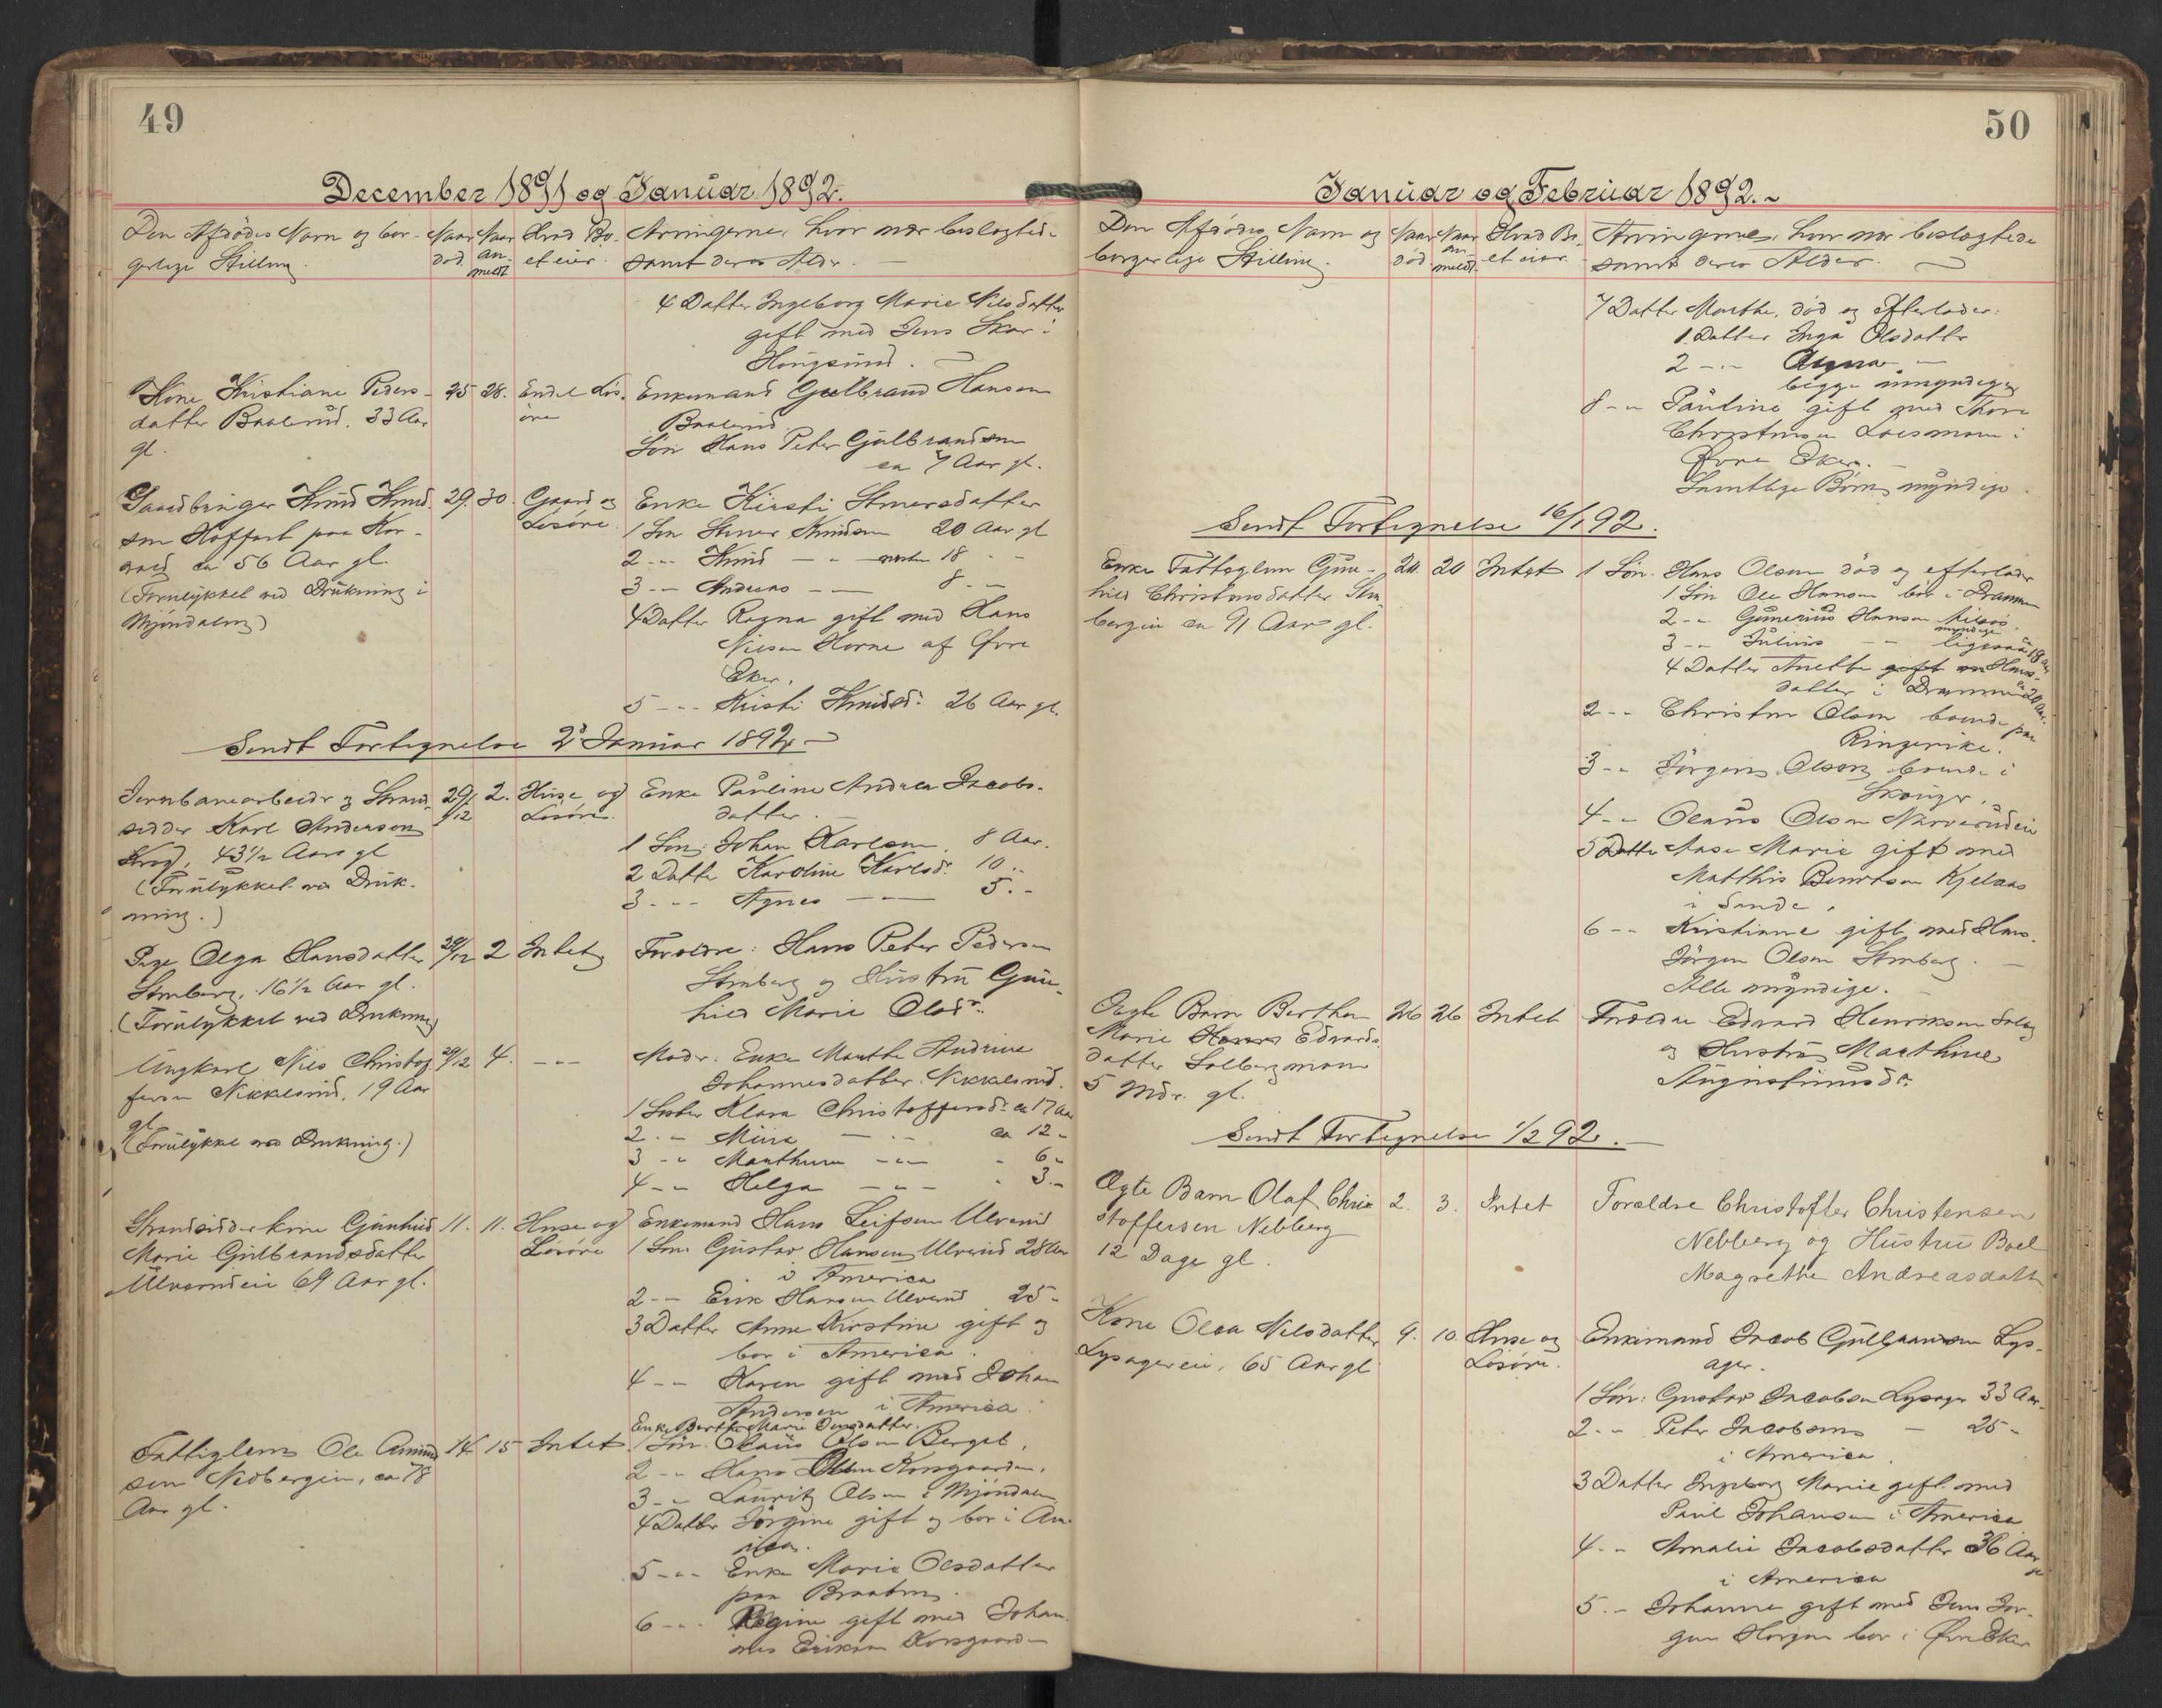 49
December 1891 og Januar 1892.
Den Afdödes Navn og bor-
gerlige Stilling.
Naar
död.
Naar
an-
meldt
Hvad Bo-
et eier.
Arvingerne, hvor nær beslægtede
samt deres Alder.
4 Datter Ingeborg Marie Nilsdatter
gift med Jens Skar i
Hougsund.
Kone Kristiane Peders-
datter Baalerud. 33 Aar
gl.
25 28. Endel Lös-
öre
Enkemand Gulbrand Hansen
Baalerud
Sön Hans Peter Gulbrandsen
ca 7 Aar gl.
Gaardbruger Knud Knud-
sen Hoffart paa Kor-
ca 56 Aar gl.
(Forulykket ved Drukning i
Mjöndalen)
29. 30. Gaard og
Lösöre.
Enke Kirsti Stenersdatter
1 Sön Stener Knudsen 20 Aar gl
2 -"- Knud - " - næsten 18 - -
3 -"- Andreas - - 8 - -
4 Datter Ragna gift med Hans
Nilsen Horne af Övre
Eker.
5 -"- Kirsti Knudsd: 26 Aar gl.
Sendt Fortegnelse 2' Januar 1892.
Jernbanearbeider og Strand-
sidder Karl Anderson
Krog, 43 1/2 Aar gl
(Forulykket ved Druk-
ning.)
29/12 2. Huse og
Lösöre.
Enke Pauline Andrea Jacobs-
datter.
1 Sön: Johan Karlsen 8 Aar.
2 Datter Karoline Karlsd: 10 -
3 -"- Agnes - - 5 -
Pige Olga Hansdatter
Stenberg, 16 1/2 Aar gl.
(Forulykket ved Drukning)
29/12 2 Intet
Foreldre: Hans Peter Pedersen
Stenberg og Hustru Gun-
hild Marie Olsdr.
Ungkarl Nils Christof-
fersen Nikkelsrud, 19 Aar
gl.
(Forulykket ved Drukning.)
29/12 4. -"-
Moder: Enke Marthe Andrine
Johannesdatter Nikkelsrud.
1 Söster Klara Christoffersd: ca 17 Aar
2 -"- Mina - - ca 12 -
3 -"- Marthine -"- " 6 -
4 -"- Helga -"- " 3. -
Strandsidderkone Gunhild
Marie Gulbrandsdatter
Ulverudeie 69 Aar gl.
11. 11. Huse og
Lösöre
Enkemand Hans Leifsen Ulverud
1 Sön: Gustav Hansen Ulverud 28 Aar
i America
2 -"- Erik Hansen Ulverud 25 -
3 Datter Anne Kirstine gift og
bor i America.
4 -"- Karen gift med Johan
Andersen i America.
Fattiglem Ole Amund-
sen Nedbergeie, ca 78
Aar gl.
14. 15 Intet
Enke Berthe Marie Jensdatter.
1 Sön. Olaus Olsen Berget,
2 -"- Hans Olsen Korsgaarden.
3 -"- Lauritz Olsen i Mjöndalen
4 Datter Jörgine gift og bor i Ame-
rica.
5 -"- Enke Marie Olsdatter
paa Braaten
6 -"- Regine gift med Johan-
nes Eriksen Korsgaarden
50
Januar og Februar 1892.
Den Afdödes Navn og
borgerlige Stilling.
Naar
död.
Naar
an-
meldt.
Hvad Bo-
et eier.
Arvingerne, hvor nær beslægtede
samt deres Alder.
7 Datter Marthe, död og efterlader:
1. Datter Inga Olsdatter
2 -"- Agna -
begge umyndige
8 -"- Pauline gift med Thore
Christensen Loesmoen i
Övre Eker.
Samtlige Börn myndige.
Sendt Fortegnelse 16/1 92.
Enke Fattiglem Gun-
hild Christensdatter Sten-
bergeie ca 91 Aar gl.
20. 20 Intet
1 Sön. Hans Olsen död og efterlader
1 Sön Ole Hansen bor i Drammen
2 -"- Gunerius Hansen ligesaa.
myndige
3 -"- Julius - - ligesaa 18 Aar
4 Datter Anette gift Hans-
datter i Drammen 20 Aar.
2 -"- Christen Olsen boende paa
Ringerike.
3 -"- Jörgen Olsen boende i
Skouger.
4 -"- Olaus Olsen Narverudeie
5 Datter Aase Marie gift med
Matthis Berntsen Kjelaas
i Sande.
6 -"- Kristiane gift med Hans
Jörgen Olsen Stenberg.
Alle myndige.
Ægte Barn Berthe
Marie Edvards-
datter Solbergmoen
5 Mdr. gl.
26 26 Intet
Foreldre Edvard Henriksen Solberg
og Hustru Marthine
Augustinusdr.
Sendt Fortegnelse 1/2 92.
Ægte Barn Olaf Chri-
stoffersen Nebberg
12 Dage gl.
2. 3. Intet
Forældre Christoffer Christensen
Nebberg og Hustru Boel
Magrethe Andreasdatter
Kone Olea Nilsdatter
Lysagereie, 65 Aar gl
9. 10. Huse og
Lösöre.
Enkemand Jacob Gulbransen Lys-
ager.
1 Sön: Gustav Jacobsen Lysager 33 Aar
2 -"- Peter Jacobsen - 25 -
i America.
3 Datter Ingeborg Marie gift med
Paul Johansen i America
4 -"- Amalie Jacobsdatter 36 Aar
i America
5 -"- Johanne gift med Jens Jör-
gen Horgen bor i Övre Eker